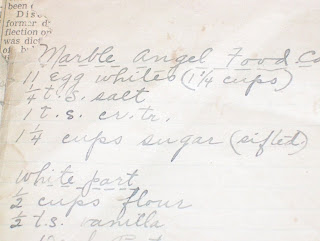 been
Disc
former
flection
was
Marble Angel Food
11 egg whites (1 1/4 cups)
1/4 t.s. salt
1 t.s. cr. tr.
1 1/4 cups sugar (sifted)
White part
1/2 cups flour
1/2 t.s. vanilla